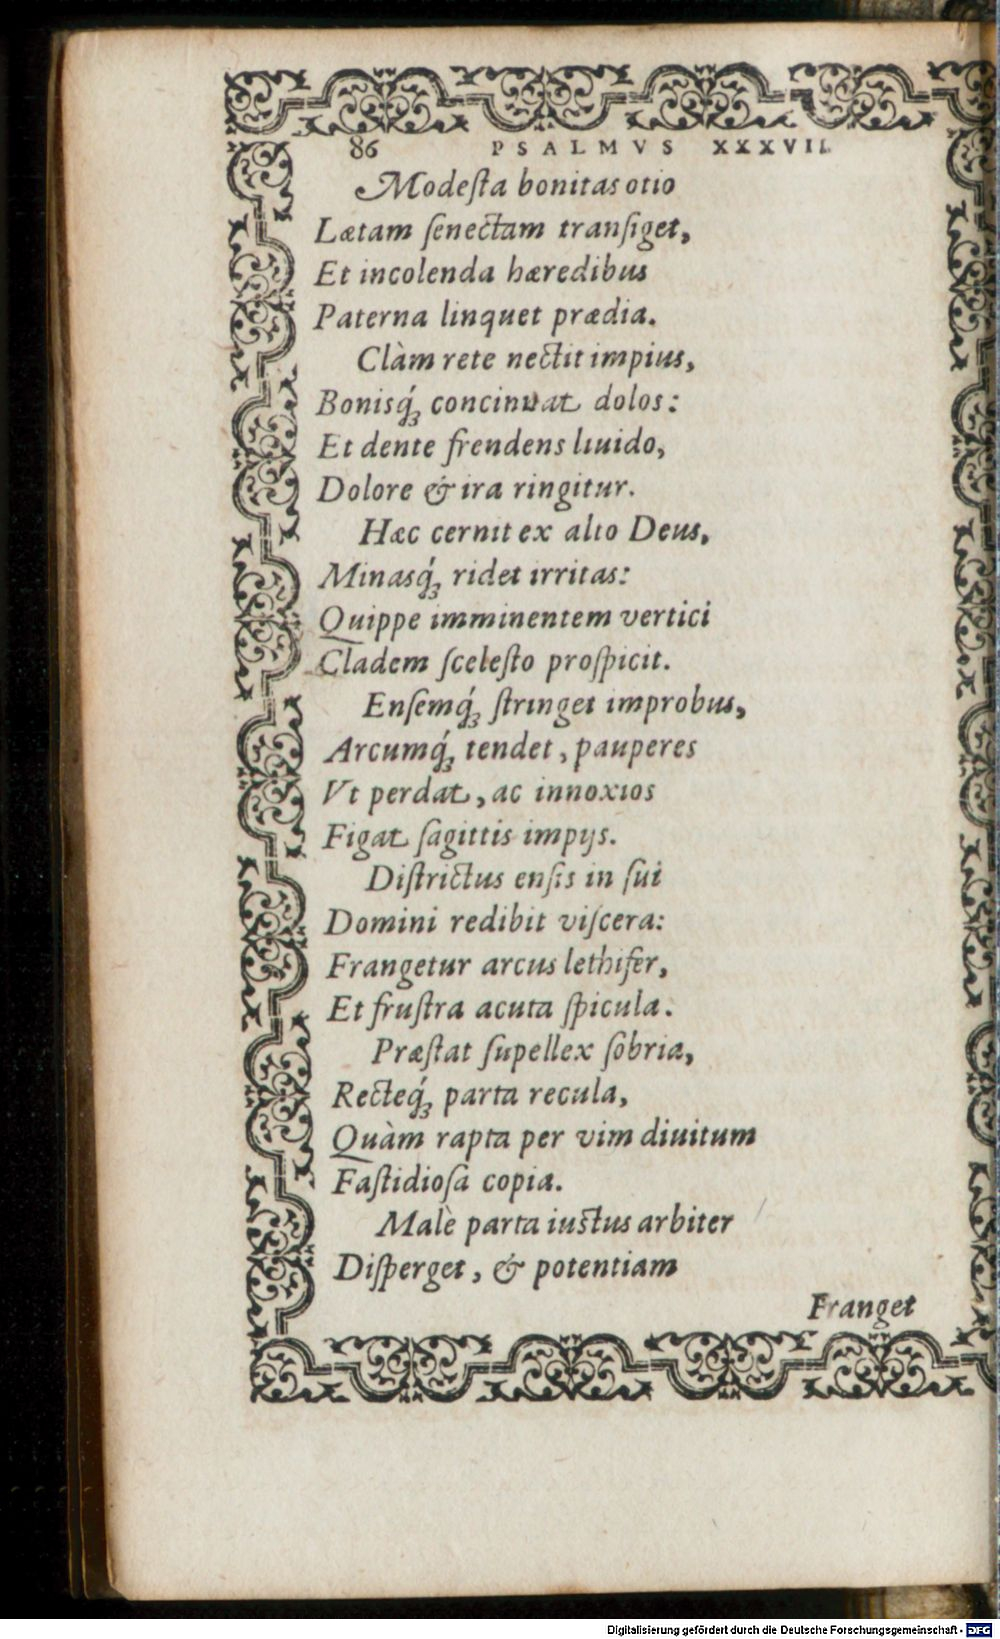 86 PSALMVS XXXVII.
Modeſta bonitas otio
Lætam ſenectam tranſiget,
Et incolenda hæredibus
Paterna linquet prædia.
Clàm rete nectit impius,
Bonisq́ꝫ concinnat dolos:
Et dente frendens liuido,
Dolore & ira ringitur.
Hæc cernit ex alto Deus,
Minasq́ꝫ ridet irritas:
Quippe imminentem vertici
Cladem ſceleſto proſpicit.
Enſemq́ꝫ ſtringet improbus,
Arcumq́ꝫ tendet, pauperes
Vt perdat, ac innoxios
Figat ſagittis impijs.
Diſtrictus enſis in ſui
Domini redibit viſcera:
Frangetur arcus lethifer,
Et fruſtra acuta ſpicula.
Præſtat ſupellex ſobria,
Recteq́ꝫ parta recula,
Quàm rapta per vim diuitum
Faſtidioſa copia.
Malè parta iuſtus arbiter
Diſperget, & potentiam
Franget
Digitalisierung gefördert durch die Deutsche Forschungsgemeinschaft - DFG